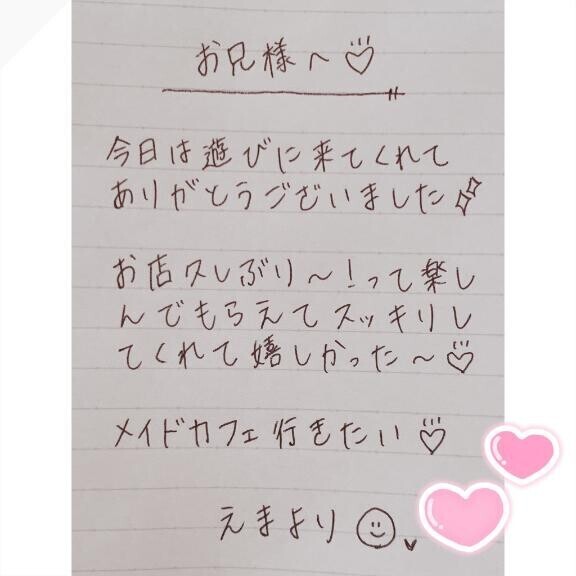 お兄様へ♡
今日は遊びに来てくれて
ありがとうございました
お店久しぶり〜！って楽し
んでもらえてスッキリし
てくれて嬉しかった〜♡
メイドカフェ行きたい♡
えまより